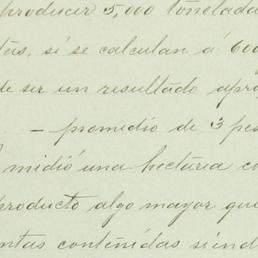 producir 5,000 tonelada
tas, si se calculan á 600
de ser un resultado apro
- promedio de 3 pes
midió una hectaria co
producto algo mayor que
ntas contenidas siend